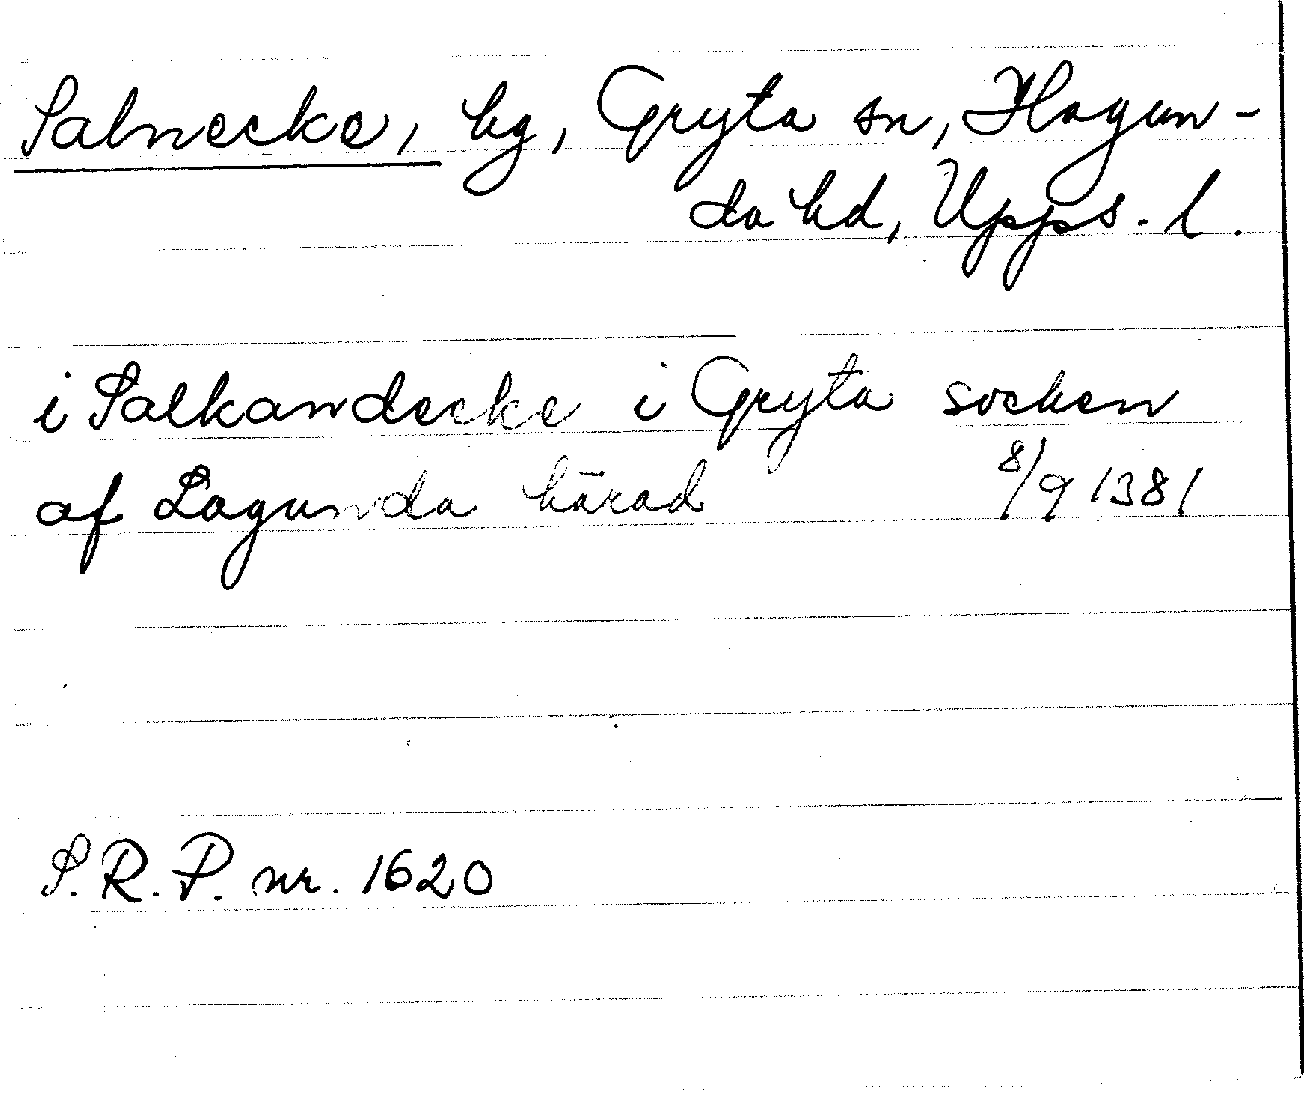 Salnecke, hg, Gryta sn, Hagun-
da hd, Upps. l.
i Salkandecke i Gryta socken
af Lagunda härad 8/9 1381
S.R.P. nr. 1620